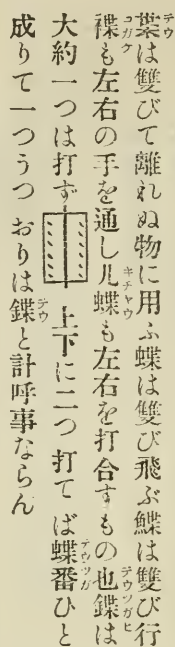 葉は雙びて離れぬ物に用ふ蝶は雙び飛ぶ鰈は雙び行
褋も左右の手を通し凡蝶も左右を打合すもの也鍱は
大約一つは打ず 上下に二つ打てば蝶番ひと
成りて一つうつ おりは鍱と計呼事ならん